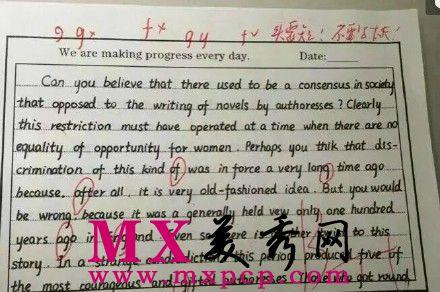 9 gx fx gy fv
We are making progress every day. Date:
Can you believe that there used to be a consensus in society
that opposed to the writing of novels by authoresses? Clearly
this restriction must have operated at a time when there are no
equality of opportunity for women. Perhaps you thik that dis-
crimination of this kind of was in force a very long time ago
because, after all, it is very old-fashioned idea. But you would
be wrong, because it was a generally held vew only one hundred
years ago in and even so there is twist to this
story. In a strange this period produced five of
the most courageous and gifted authoresses. They also got round
MX美秀网
www.mxpcp.com